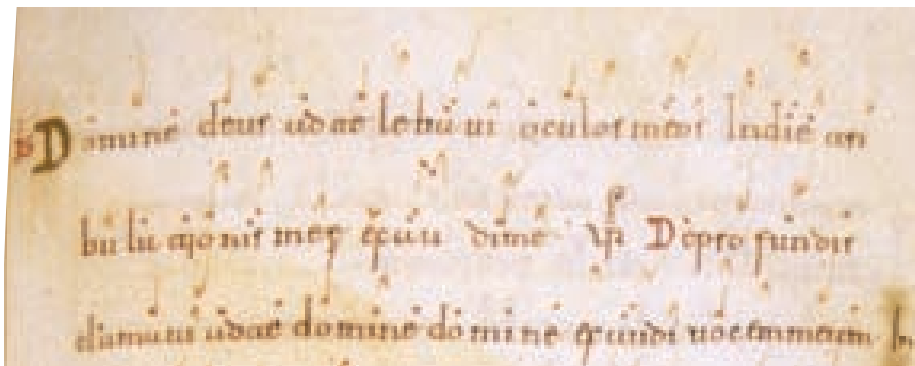 Domine deus ad te lebaui oculos meos In die tri
bulationis meę exaudi me De profundis
clamaui ad te domine domine exaudi uocem meam In